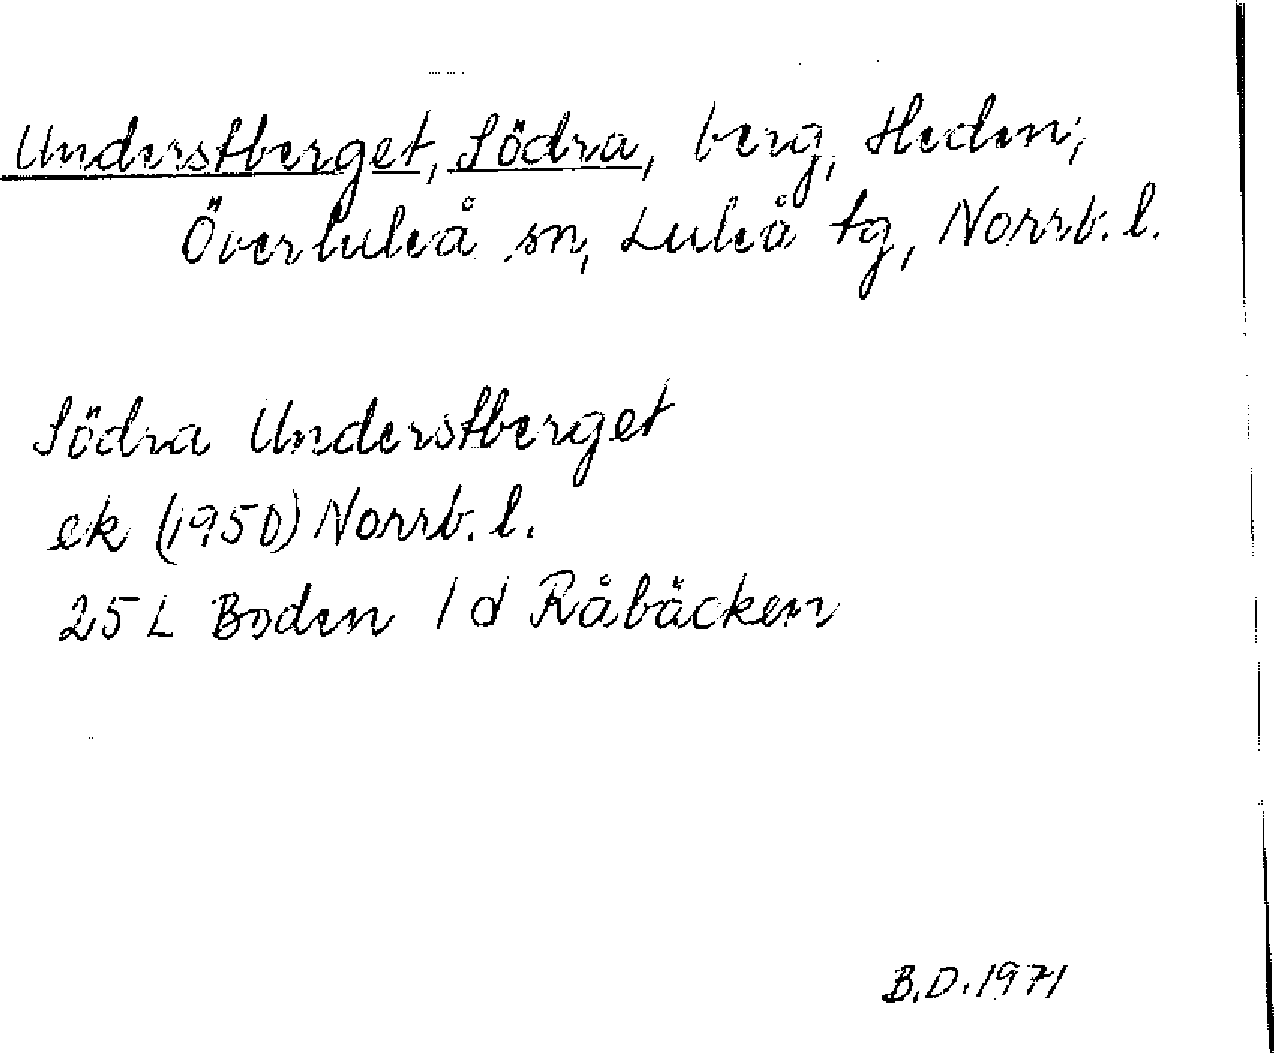 Understberget, Södra, berg, Heden;
Överluleå sn, Luleå tg, Norrb. l.
Södra Understberget
ek (1950) Norrb. l.
25 L Boden 1 d Råbäcken
B.D. 1971